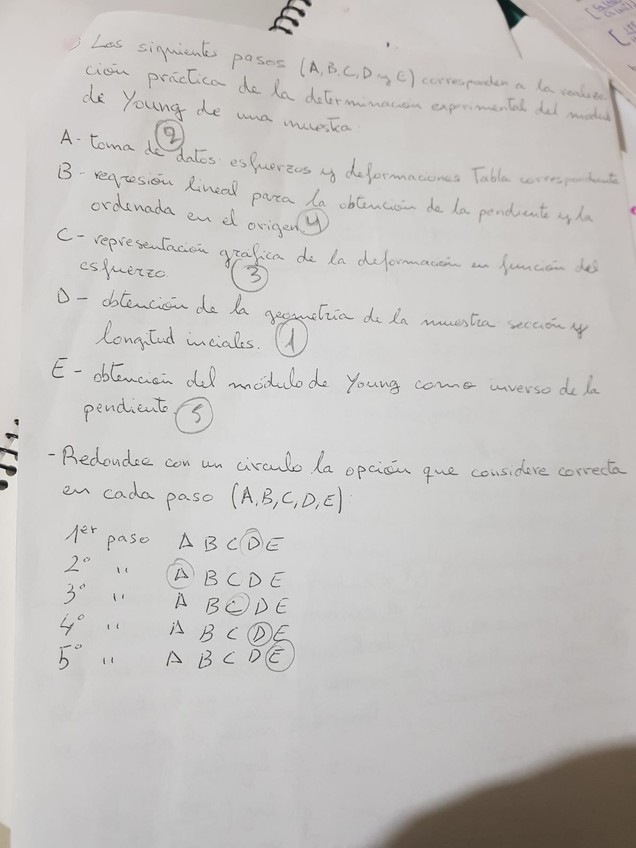 Los siguientes pasos (A, B, C, D y E) corresponden a la realiza
ción práctica de la determinación experimental del modul
de Young de una muestra.
A - toma de datos: esfuerzos y deformaciones Tabla correspondiente
②
B - regresión lineal para la obtención de la pendiente y la
ordenada en el origen ④
C - representación gráfica de la deformación en función del
esfuerzo. ③
D - obtención de la geometría de la muestra sección y
longitud inciales. ①
E - obtención del módulo de Young como inverso de la
pendiente. ⑤
- Redondee con un circulo la opción que considere correcta
en cada paso (A, B, C, D, E):
1er paso A B C D E
2º " A B C D E
3º " A B C D E
4º " A B C D E
5º " A B C D E